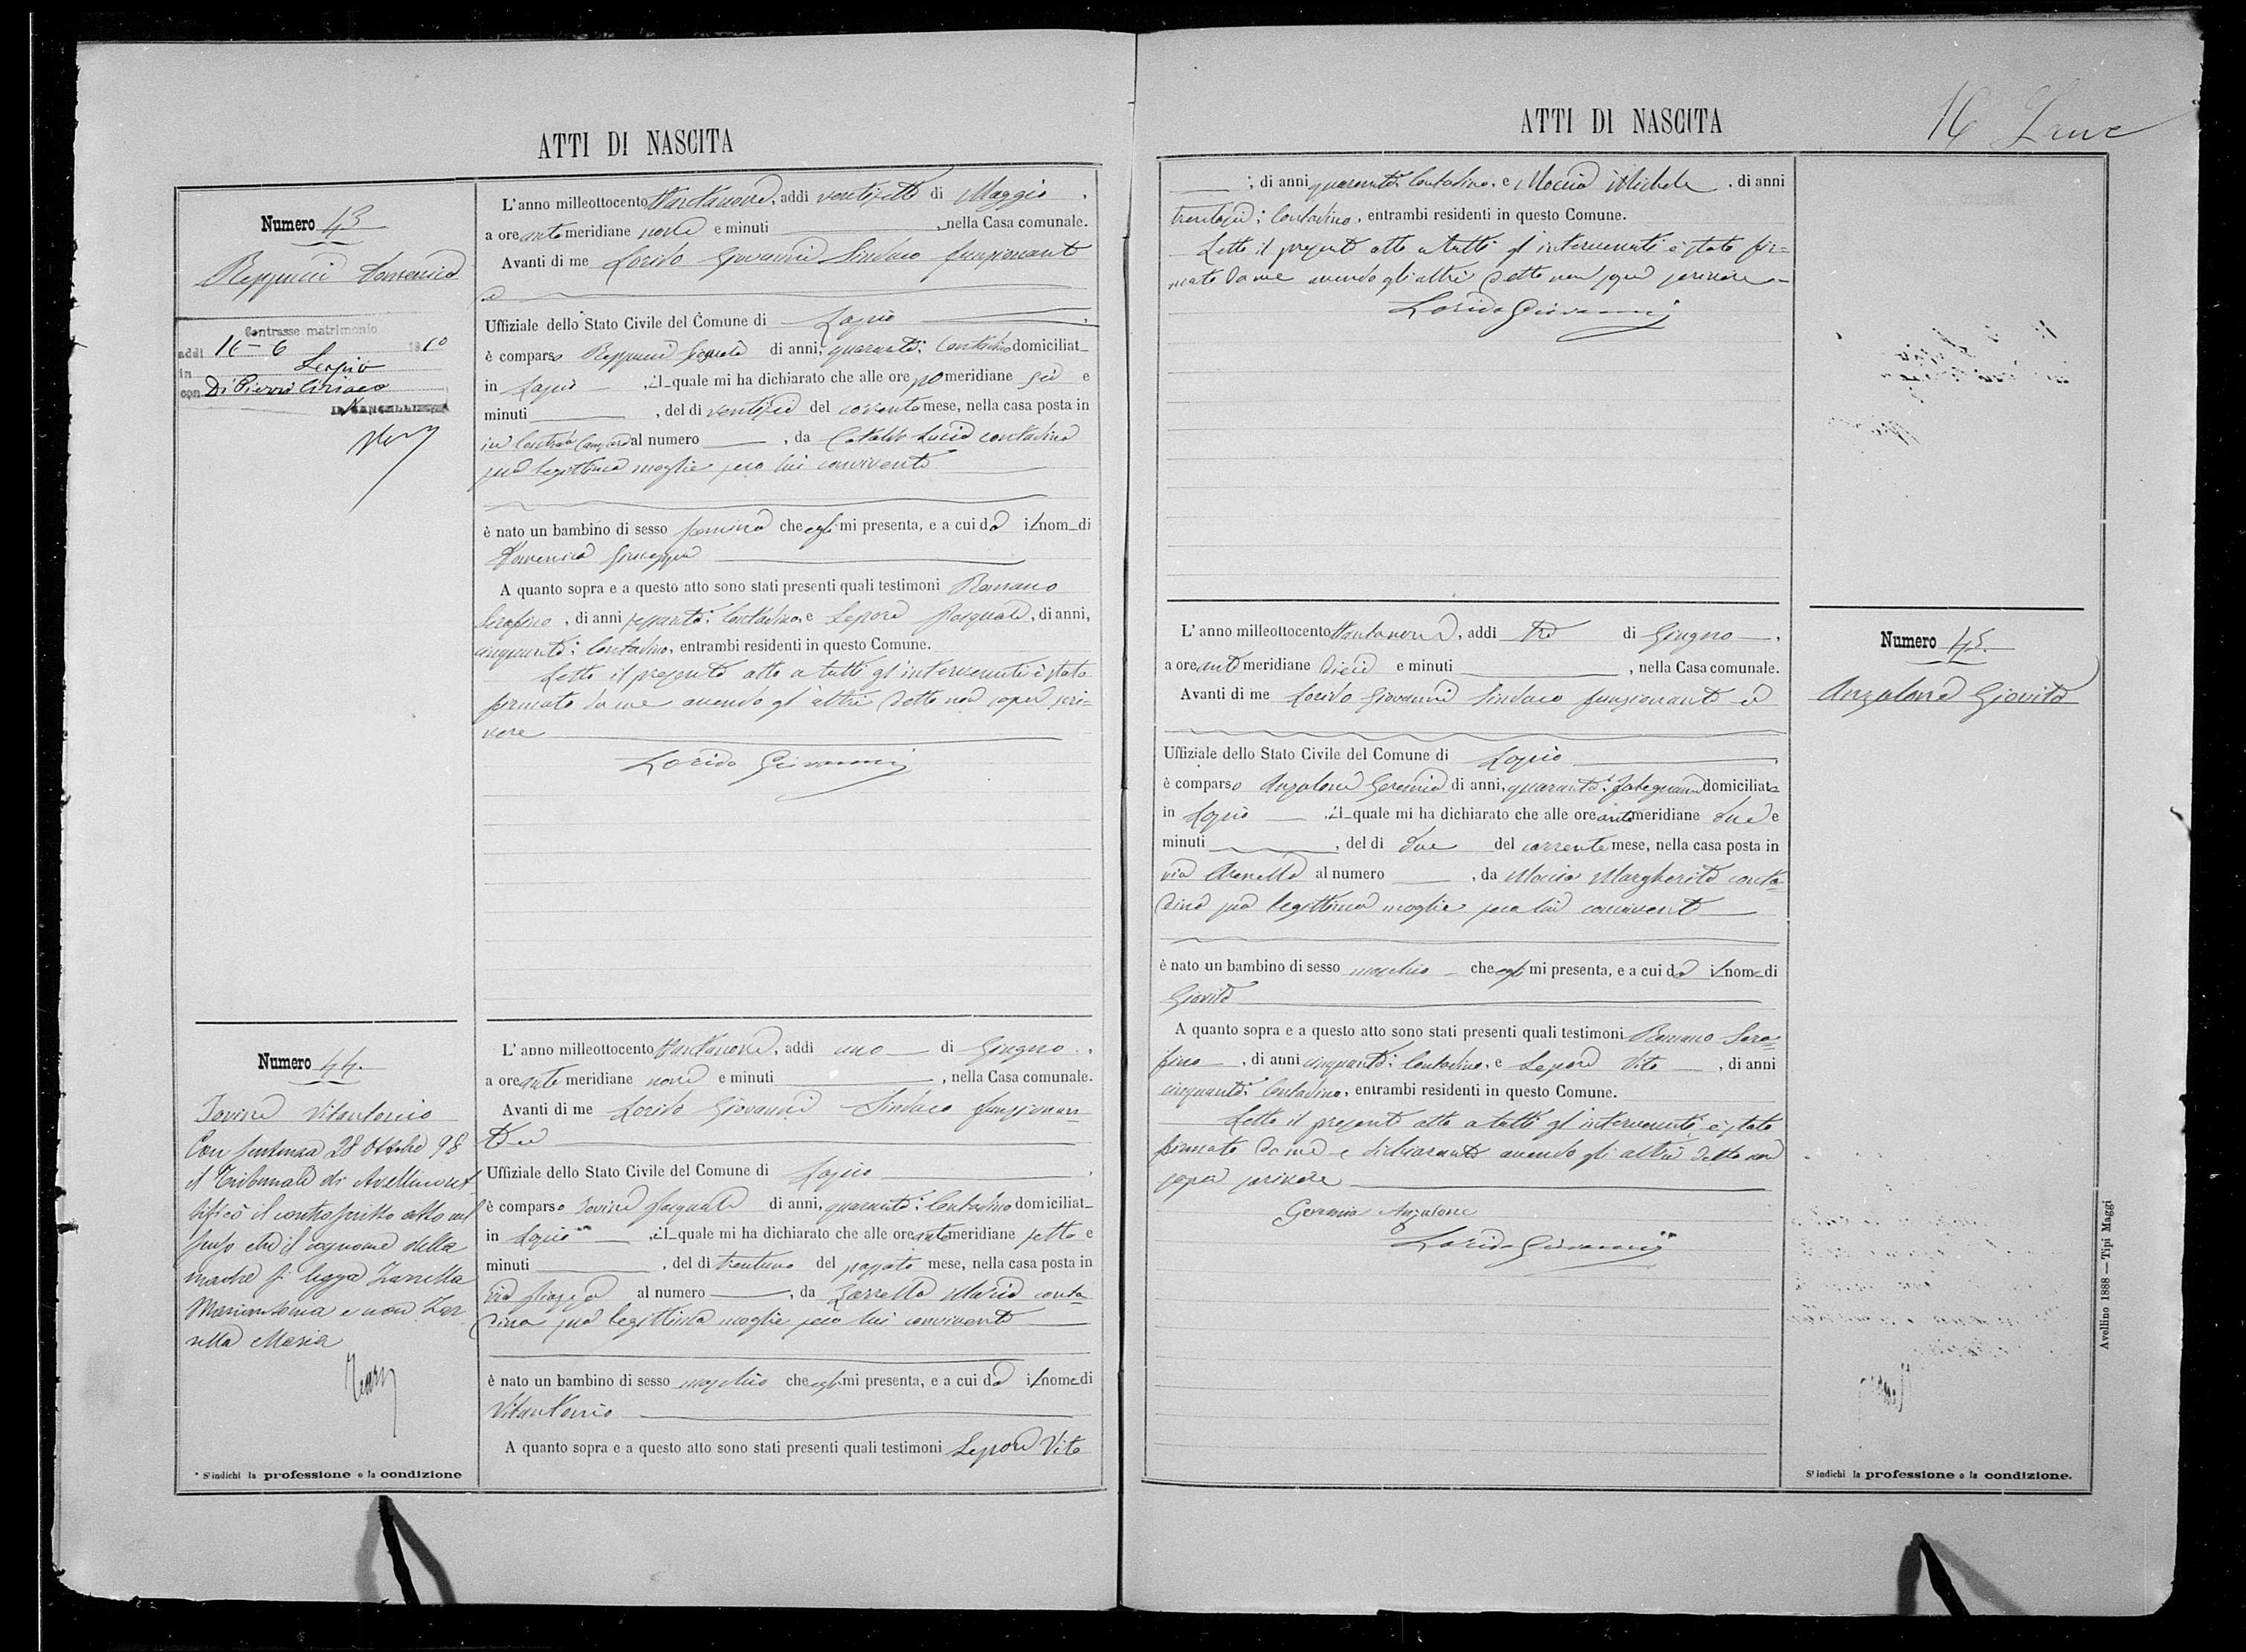 ATTI DI NASCITA
Numero 43
Reppucci Domenica
Contrasse matrimonio
addi 16-6 1910
in Lapio
con Di Pierro Ciriaco
L'anno milleottocento ottantanove, addi ventisette di Maggio,
a ore ante meridiane nove e minuti , nella Casa comunale.
Avanti di me Lorido Giovanni Sindaco funzionante
a
Uffiziale dello Stato Civile del Comune di Lapio
è comparso Reppucci di anni, quaranta: Contadino domiciliat
in Lapio , il quale mi ha dichiarato che alle ore po meridiane sei e
minuti , del dì ventisei del corrente mese, nella casa posta in
in Contrada al numero , da Cataldo Lucia contadina
sua legittima moglie seco lui convivente
è nato un bambino di sesso femina che egli mi presenta, e a cui dà il nom di
Domenica Giuseppa
A quanto sopra e a questo atto sono stati presenti quali testimoni Romano
Serafino, di anni sessanta: Contadino, e Lepore Pasquale, di anni,
cinquanta: Contadino, entrambi residenti in questo Comune.
Letto il presente atto a tutti gl'intervenuti è stato
firmato da me avendo gl'altri detto non saper scri-
vere
Lorido Giovanni
Numero 44.
Iovine Vitantonio
Con sentenza 28 Ottobre 98
il Tribunale di Avellino ret-
tificò il controscritto atto nel
senso che il cognome della
madre si legga Zarrella
Mariantonia e non Zar
rella Maria
* S'indichi la professione o la condizione
L'anno milleottocento ottantanove, addi uno di Giugno,
a ore ante meridiane nove e minuti , nella Casa comunale.
Avanti di me Lorido Giovanni Sindaco funzionan-
te ed
Uffiziale dello Stato Civile del Comune di Lapio
è comparso Iovine Pasquale di anni, quaranta: Contadino domiciliat
in Lapio , il quale mi ha dichiarato che alle ore ante meridiane sette e
minuti , del dì trentuno del passato mese, nella casa posta in
via Piazza al numero , da Zarrella Maria conta-
dina sua legittima moglie seco lui convivente
è nato un bambino di sesso maschio che egli mi presenta, e a cui dà il nome di
Vitantonio
A quanto sopra e a questo atto sono stati presenti quali testimoni Lepore Vito
ATTI DI NASCITA
16
; di anni quaranta: Contadino, e Moccia Michele, di anni
trentasei: Contadino, entrambi residenti in questo Comune.
Letto il presente atto a tutti gl'intervenuti è stato fir=
mato da me avendo gli altri detto non saper scrivere
Lorido Giovanni
L'anno milleottocento ottantanove, addi tre di Giugno,
a ore ante meridiane dieci e minuti , nella Casa comunale.
Avanti di me Lorido Giovanni Sindaco funzionante ed
Uffiziale dello Stato Civile del Comune di Lapio
è comparso Anzalone Geremia di anni, quaranta: falegname domiciliato
in Lapio , il quale mi ha dichiarato che alle ore ante meridiane due e
minuti , del dì due del corrente mese, nella casa posta in
via Arenella al numero , da Moccia Margherita conta-
dina sua legittima moglie seco lui convivente
è nato un bambino di sesso maschio che egli mi presenta, e a cui dà il nome di
Giovita
A quanto sopra e a questo atto sono stati presenti quali testimoni Romano Sera=
fino, di anni cinquanta: Contadino, e Lepore Vito, di anni
cinquanta: Contadino, entrambi residenti in questo Comune.
Letto il presente atto a tutti gl'intervenuti è stato
firmato da me e dichiarante avendo gli altri detto non
saper scrivere
Geremia Anzalone
Lorido Giovanni
Numero 45.
Anzalone Giovita
S'indichi la professione o la condizione.
Avellino 1888 — Tipi Maggi